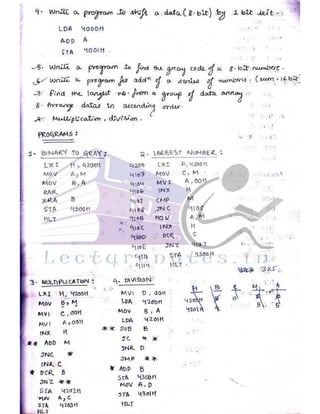 4. Write a program to shift a data (8-bit) by 1 bit left.
LDA 4000H
ADD A
STA 4001H
5. Write a program to find the gray code of a 8-bit number.
6. Write a program for addn of a series of numbers. (sum-16 bit)
7. Find the largest no. from a group of data array
8. Arrange datas to ascending order.
9. Multiplication, division.
PROGRAMS:
1- BINARY TO GRAY:
LXI H, 4200H
MOV A, M
MOV B, A
RAR
XRA B
STA 4300H
HLT
2. LARGEST NUMBER:
4200 LXI H, 4200H
4103 MOV C, M
4104 MVI A, 00H
4106 INX H
4107 CMP M
4108 JNC 410C
410B MOV A, M
410C INX H
410D DCR C
410E JNZ 4107
4111 STA 4300H
4114 HLT
Lecturenotes.in
3. MULTIPLICATION:
LXI H, 4200H
MOV B, M
MVI C, 00H
MVI A, 00H
INX H
** ADD M
JNC *
INR C
* DCR B
JNZ **
STA 4202H
MOV A, C
STA 4203H
HLT
4. DIVISION:
MVI D, 00H
LDA 4200H
MOV B, A
LDA 4201H
** SUB B
JC *
INR D
JMP **
* ADD B
STA 4300H
MOV A, D
STA 4301H
HLT
H B M A